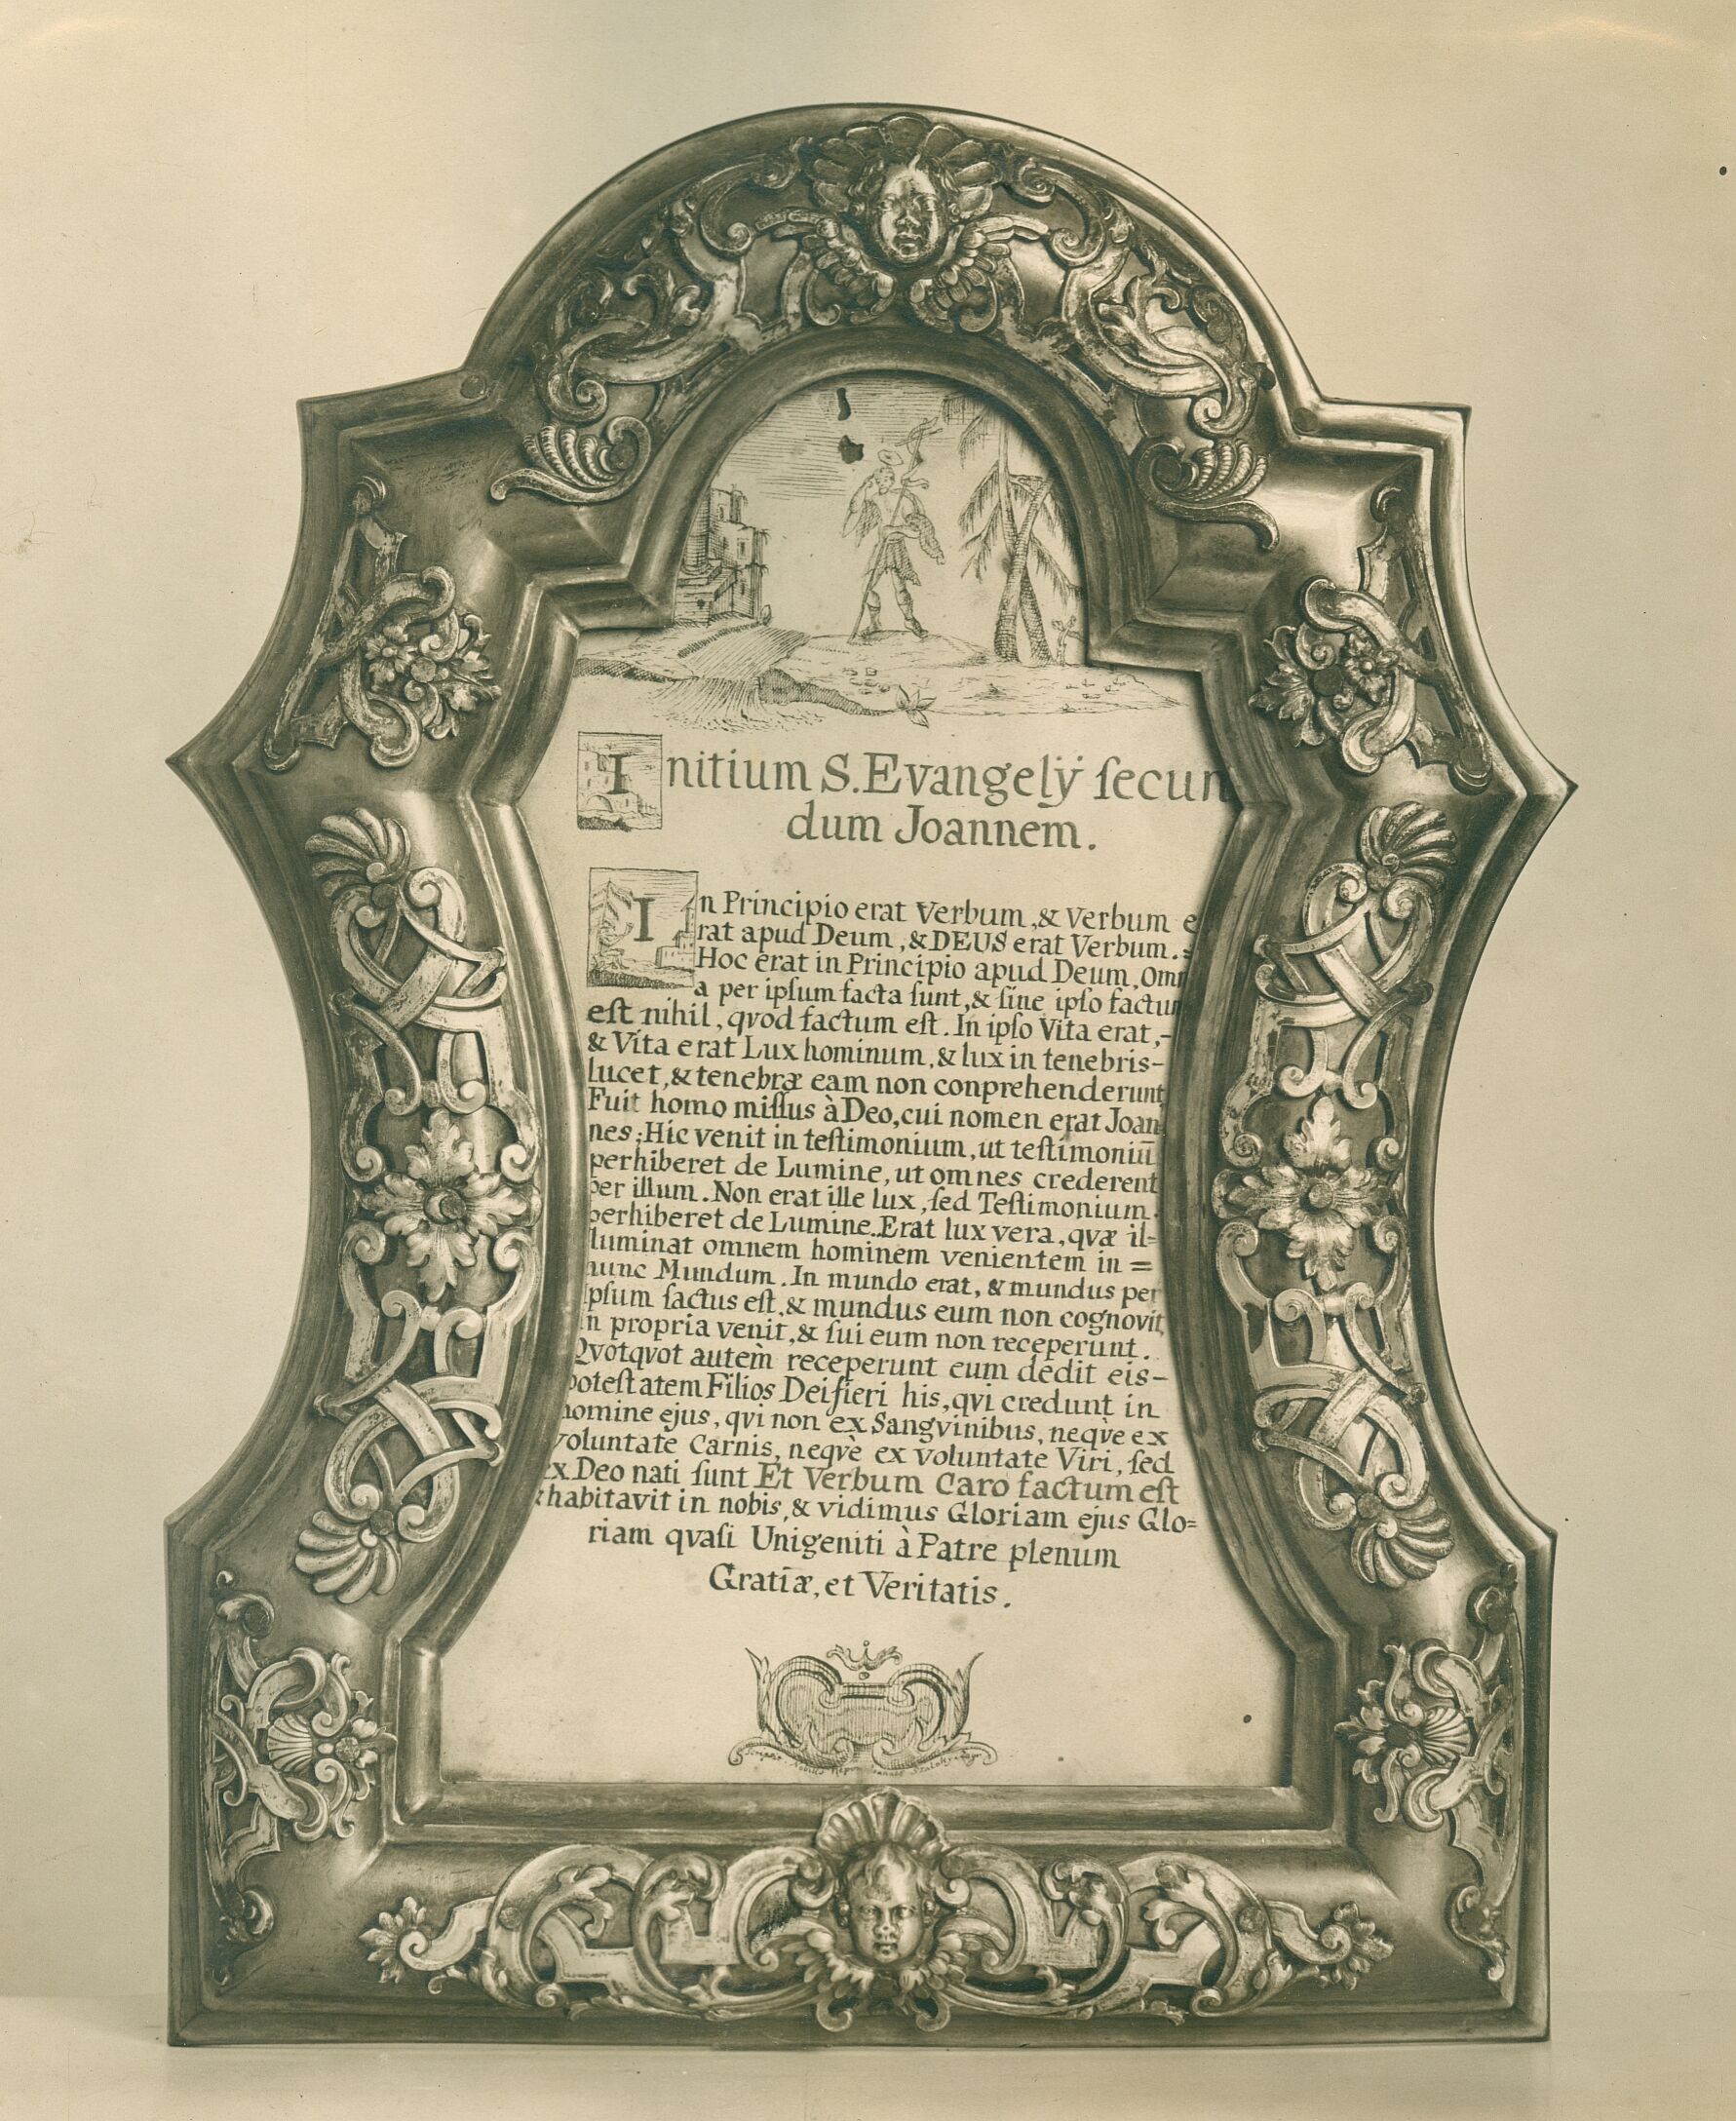 Initium S. Evangelÿ ſecun
dum Joannem.
In Principio erat Verbum, & Verbum e
rat apud Deum, & DEUS erat Verbum.=
Hoc erat in Principio apud Deum, Omni
a per ipſum facta ſunt, & ſine ipſo factum
eſt nihil, qvod factum eſt. In ipſo Vita erat,-
& Vita erat Lux hominum, & lux in tenebris-
lucet, & tenebræ eam non conprehenderunt
Fuit homo miſſus à Deo, cui nomen erat Joan
nes; Hic venit in teſtimonium, ut teſtimoniū
perhiberet de Lumine, ut omnes crederent
per illum. Non erat ille lux, ſed Teſtimonium.
perhiberet de Lumine. Erat lux vera, qvæ il=
luminat omnem hominem venientem in =
hunc Mundum. In mundo erat, & mundus per
ipſum factus eſt, & mundus eum non cognovit,
In propria venit, & ſui eum non receperunt.
Qvotqvot autem receperunt eum dedit eis-
poteſtatem Filios Dei fieri his, qvi credunt in
nomine ejus, qvi non ex Sangvinibus, neqve ex
voluntate Carnis, neqvè ex voluntate Viri, ſed
ex Deo nati ſunt Et Verbum Caro factum eſt
& habitavit in nobis, & vidimus Gloriam ejus Glo=
riam qvaſi Unigeniti à Patre plenum
Gratiæ, et Veritatis.